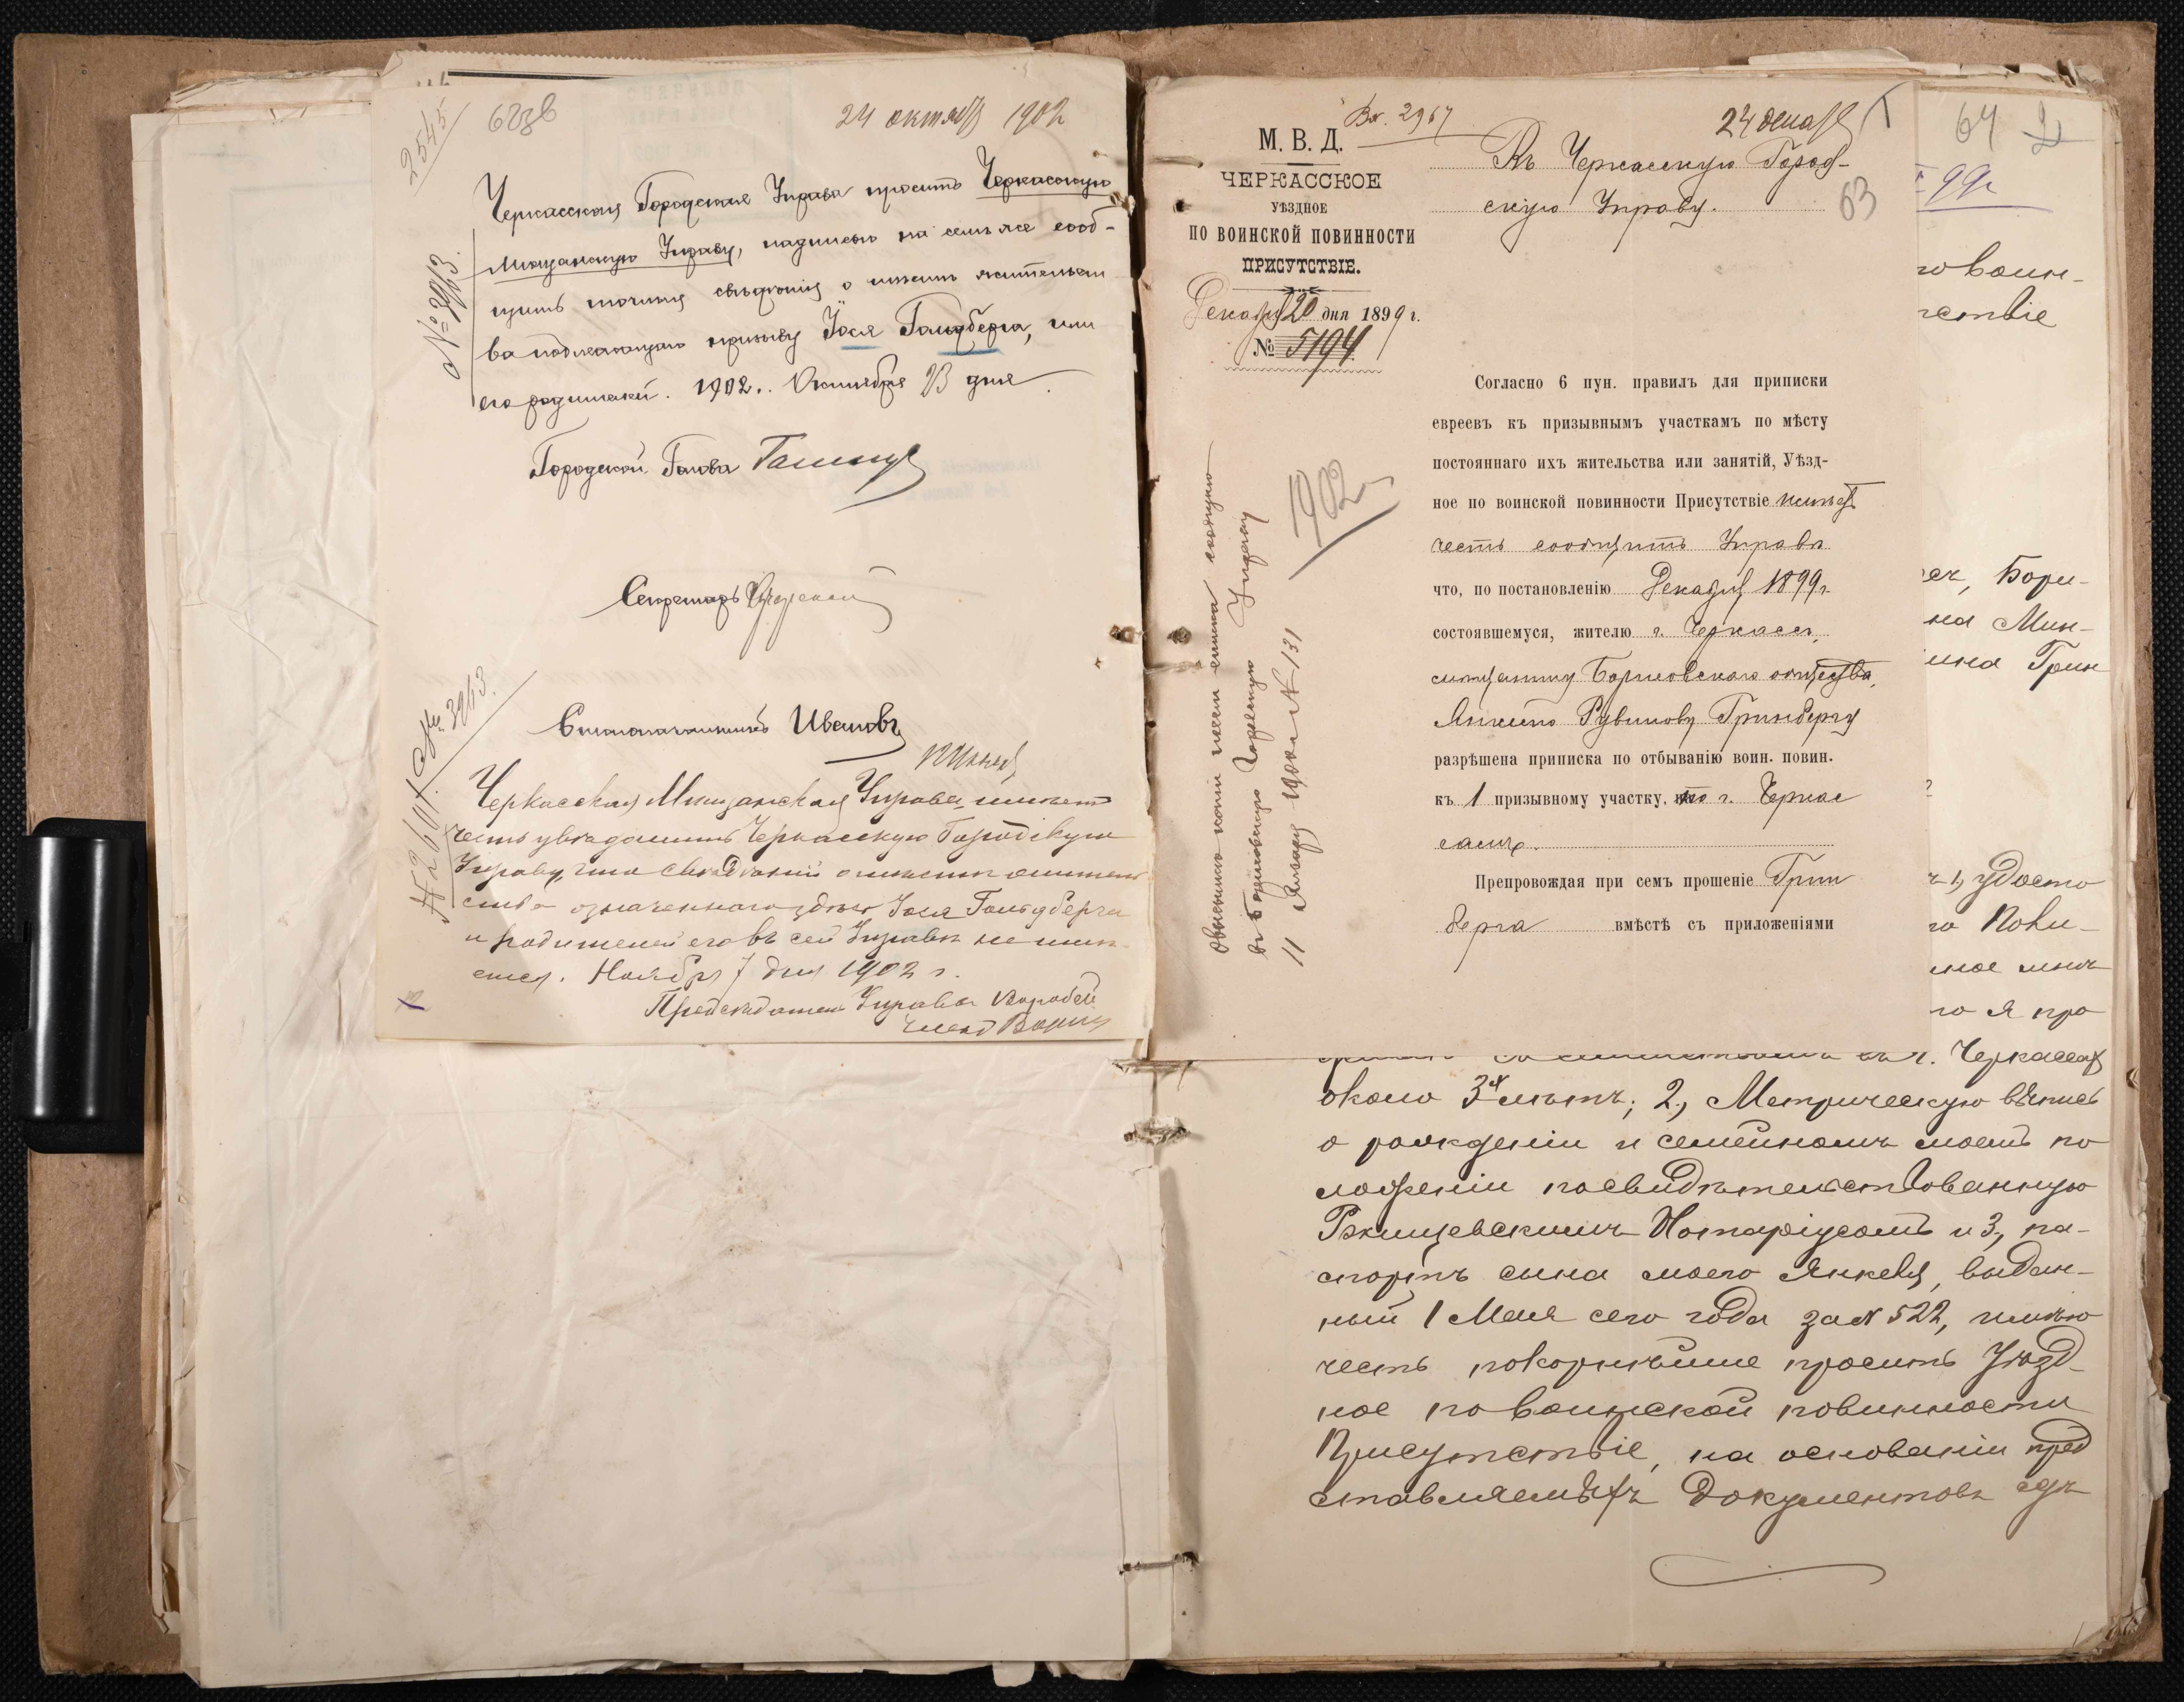 2545
62зв
24 октября 1902
Черкасская Городская Управа проситъ Черкасскую
Мещанскую Управу, надписью на семъ же сооб-
щить точныя свѣдѣнія о мѣстѣ жительст
ва подлежащаго призыву Іося Гольдберга, или
его родителей. 1902 г. Октября 23 дня.
№ 3913.
Городской Голова
Секретарь
Столоначальникъ Ивановъ
№ 2601.
Черкасская Мещанская Управа имѣетъ
честь увѣдомить Черкасскую Городскую
Управу, что свѣдѣній о мѣстѣ житель
ства означеннаго здѣсь Іося Гольдберга
и родителей его въ сей Управѣ не имѣ-
ется. Ноября 7 дня 1902 г.
Предсѣдатель Управы Воробей
Членъ
Вх. 2967
24 декабр
М. В. Д.
ЧЕРКАССКОЕ
УѢЗДНОЕ
ПО ВОИНСКОЙ ПОВИННОСТИ
ПРИСУТСТВІЕ.
Декабря 20 дня 1899 г.
№ 5194
Въ Черкасскую Город-
скую Управу.
63
1902
въ Горишковскую Городскую Управу
11 Января 1900 г. № 131
Согласно 6 пун. правилъ для приписки
евреевъ къ призывнымъ участкамъ по мѣсту
постояннаго ихъ жительства или занятій, Уѣзд-
ное по воинской повинности Присутствіе имѣетъ
честь сообщить Управѣ
что, по постановленію Декабря 1899 г.
состоявшемуся, жителю г. Черкассъ,
мѣщанину общества,
Янкелю Рувинову Гринбергу
разрѣшена приписка по отбыванію воин. повин.
къ 1 призывному участку, по г. Черкас
самъ.
Препровождая при семъ прошеніе Грин
берга вмѣстѣ съ приложеніями
64
99г
го воин-
тствіе
Бори-
на Мин-
ина Грин
удосто
го Пови-
ное мнѣ
го я про
г. Черкассах
около 3х лѣтъ; 2, Метрическую выпись
о рожденіи и семейномъ моемъ по
ложеніи посвидѣтельствованную
Ржищевскимъ Нотаріусомъ и 3, па-
спортъ сына моего Янкеля, выдан-
ный 1 Мая сего года за № 522, имѣю
честь покорнѣйше просить Уѣзд-
ное по воинской повинности
Присутствіе, на основаніи пред
ставляемыхъ документовъ сдѣ